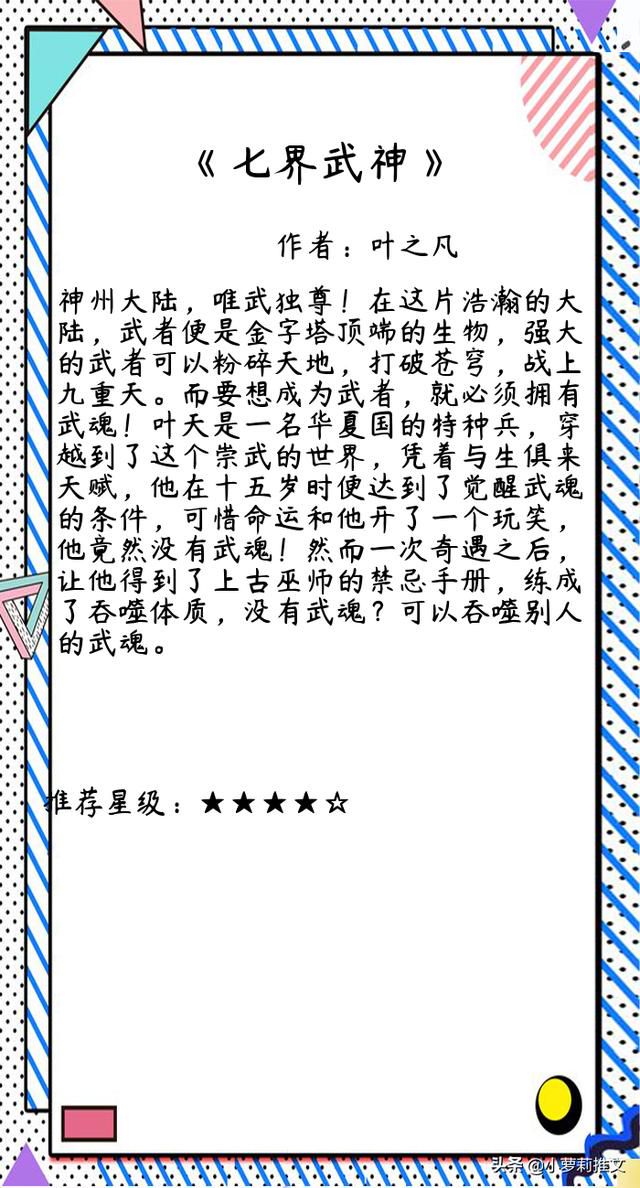 《七界武神》
作者：叶之凡
神州大陆，唯武独尊！在这片浩瀚的大
陆，武者便是金字塔顶端的生物，强大
的武者可以粉碎天地，打破苍穹，战上
九重天。而要想成为武者，就必须拥有
武魂！叶天是一名华夏国的特种兵，穿
越到了这个崇武的世界，凭着与生俱来
天赋，他在十五岁时便达到了觉醒武魂
的条件，可惜命运和他开了一个玩笑，
他竟然没有武魂！然而一次奇遇之后，
让他得到了上古巫师的禁忌手册，练成
了吞噬体质，没有武魂？可以吞噬别人
的武魂。
推荐星级：★★★★☆
头条 @小萝莉推文